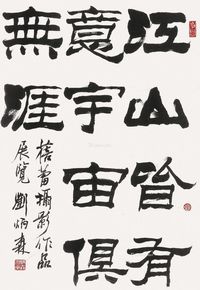 江山皆有
意宇宙俱
無涯
蕾攝影作品
展覽 劉炳森